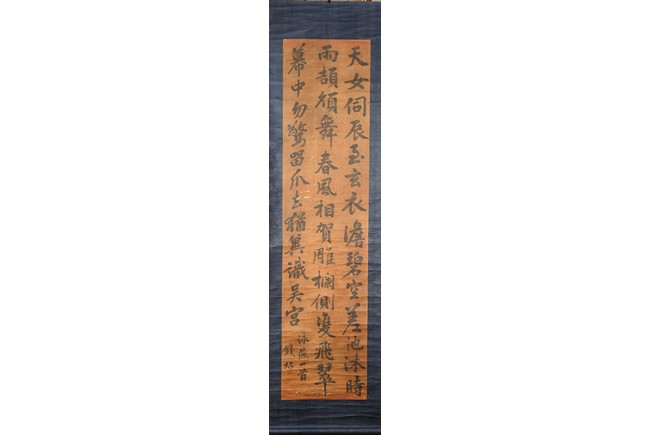 天女伺辰至玄衣澹碧空差池沐時
雨頡頏舞春風相賀雕欄側雙飛翠
幕中勿驚留爪去猶冀識吳宮
詠燕一首
錢